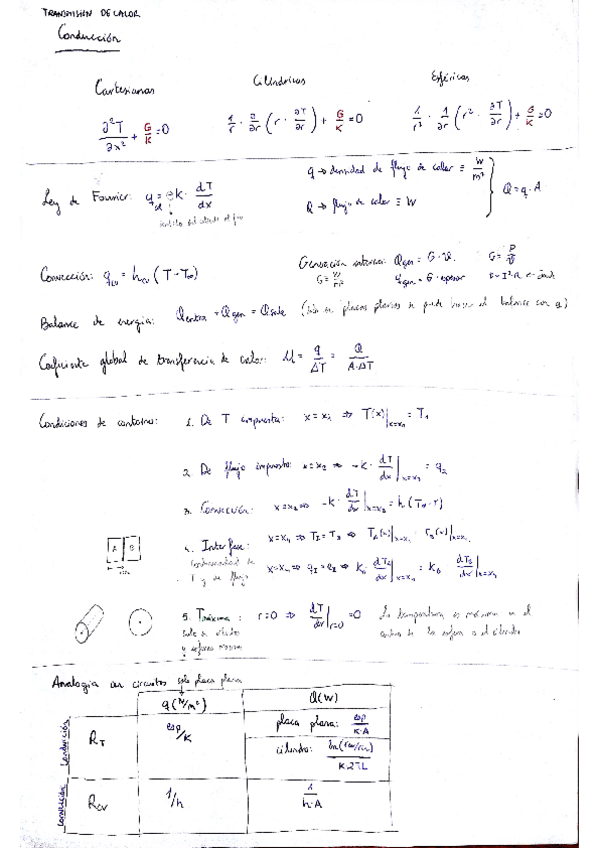 TRANSMISIÓN DE CALOR
Conducción
Cartesianas Cilíndricas Esféricas
∂²T/∂x² + G/K = 0 1/r · ∂/∂r (r · ∂T/∂r) + G/K = 0 1/r² · ∂/∂r (r² · ∂T/∂r) + G/K = 0
Ley de Fourier: q = -k · dT/dx
q → densidad de flujo de calor ≡ W/m²
Q → flujo de calor ≡ W
Q = q · A
Convección: q = h (T - T∞)
Generación interna: Qgen = G · V G = P/V
qgen = G · espesor
Balance de energía: Qentra + Qgen = Qsale (Solo en placas planas se puede hacer el balance con q)
Coeficiente global de transferencia de calor: U = q/ΔT = Q/A·ΔT
Condiciones de contorno: 1. De T impuesta: x = x₁ ⇒ T(x)|x=x₁ = T₁
2. De flujo impuesto: x = x₂ ⇒ -k · dT/dx|x=x₂ = q₂
3. Convección: x = x₃ ⇒ -k · dT/dx|x=x₃ = h (T∞ - T)
A B
4. Interfase:
Continuidad de
T y de flujo
5. T máxima: r = 0 ⇒ dT/dr|r=0 = 0 La temperatura es máxima en el
centro de la esfera o el cilindro
solo en cilindro
y esfera maciza
Analogía con circuitos
solo placa plana
q (W/m²) Q (W)
Conducción
R_T esp/K placa plana: esp/K·A
cilindro:
Convección
R_CV 1/h 1/h·A